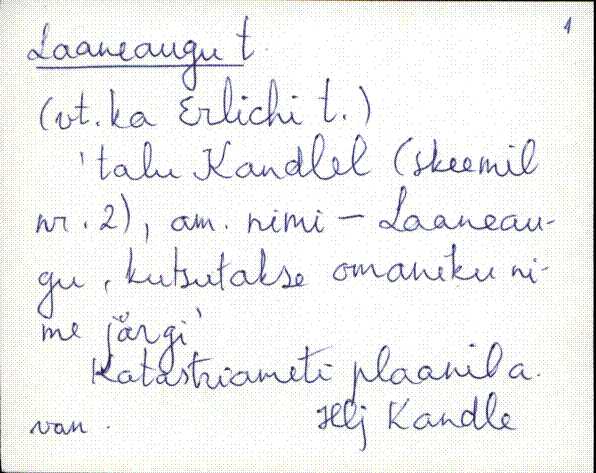 1
Laaneaugu t.
(vt. ka Erlichi t.)
'talu Kandlel (skeemil
nr. 2), am. nimi – Laaneau-
gu, kutsutakse omaniku ni-
me järgi'
Katastriameti plaanil a.
van. Hlj Kandle